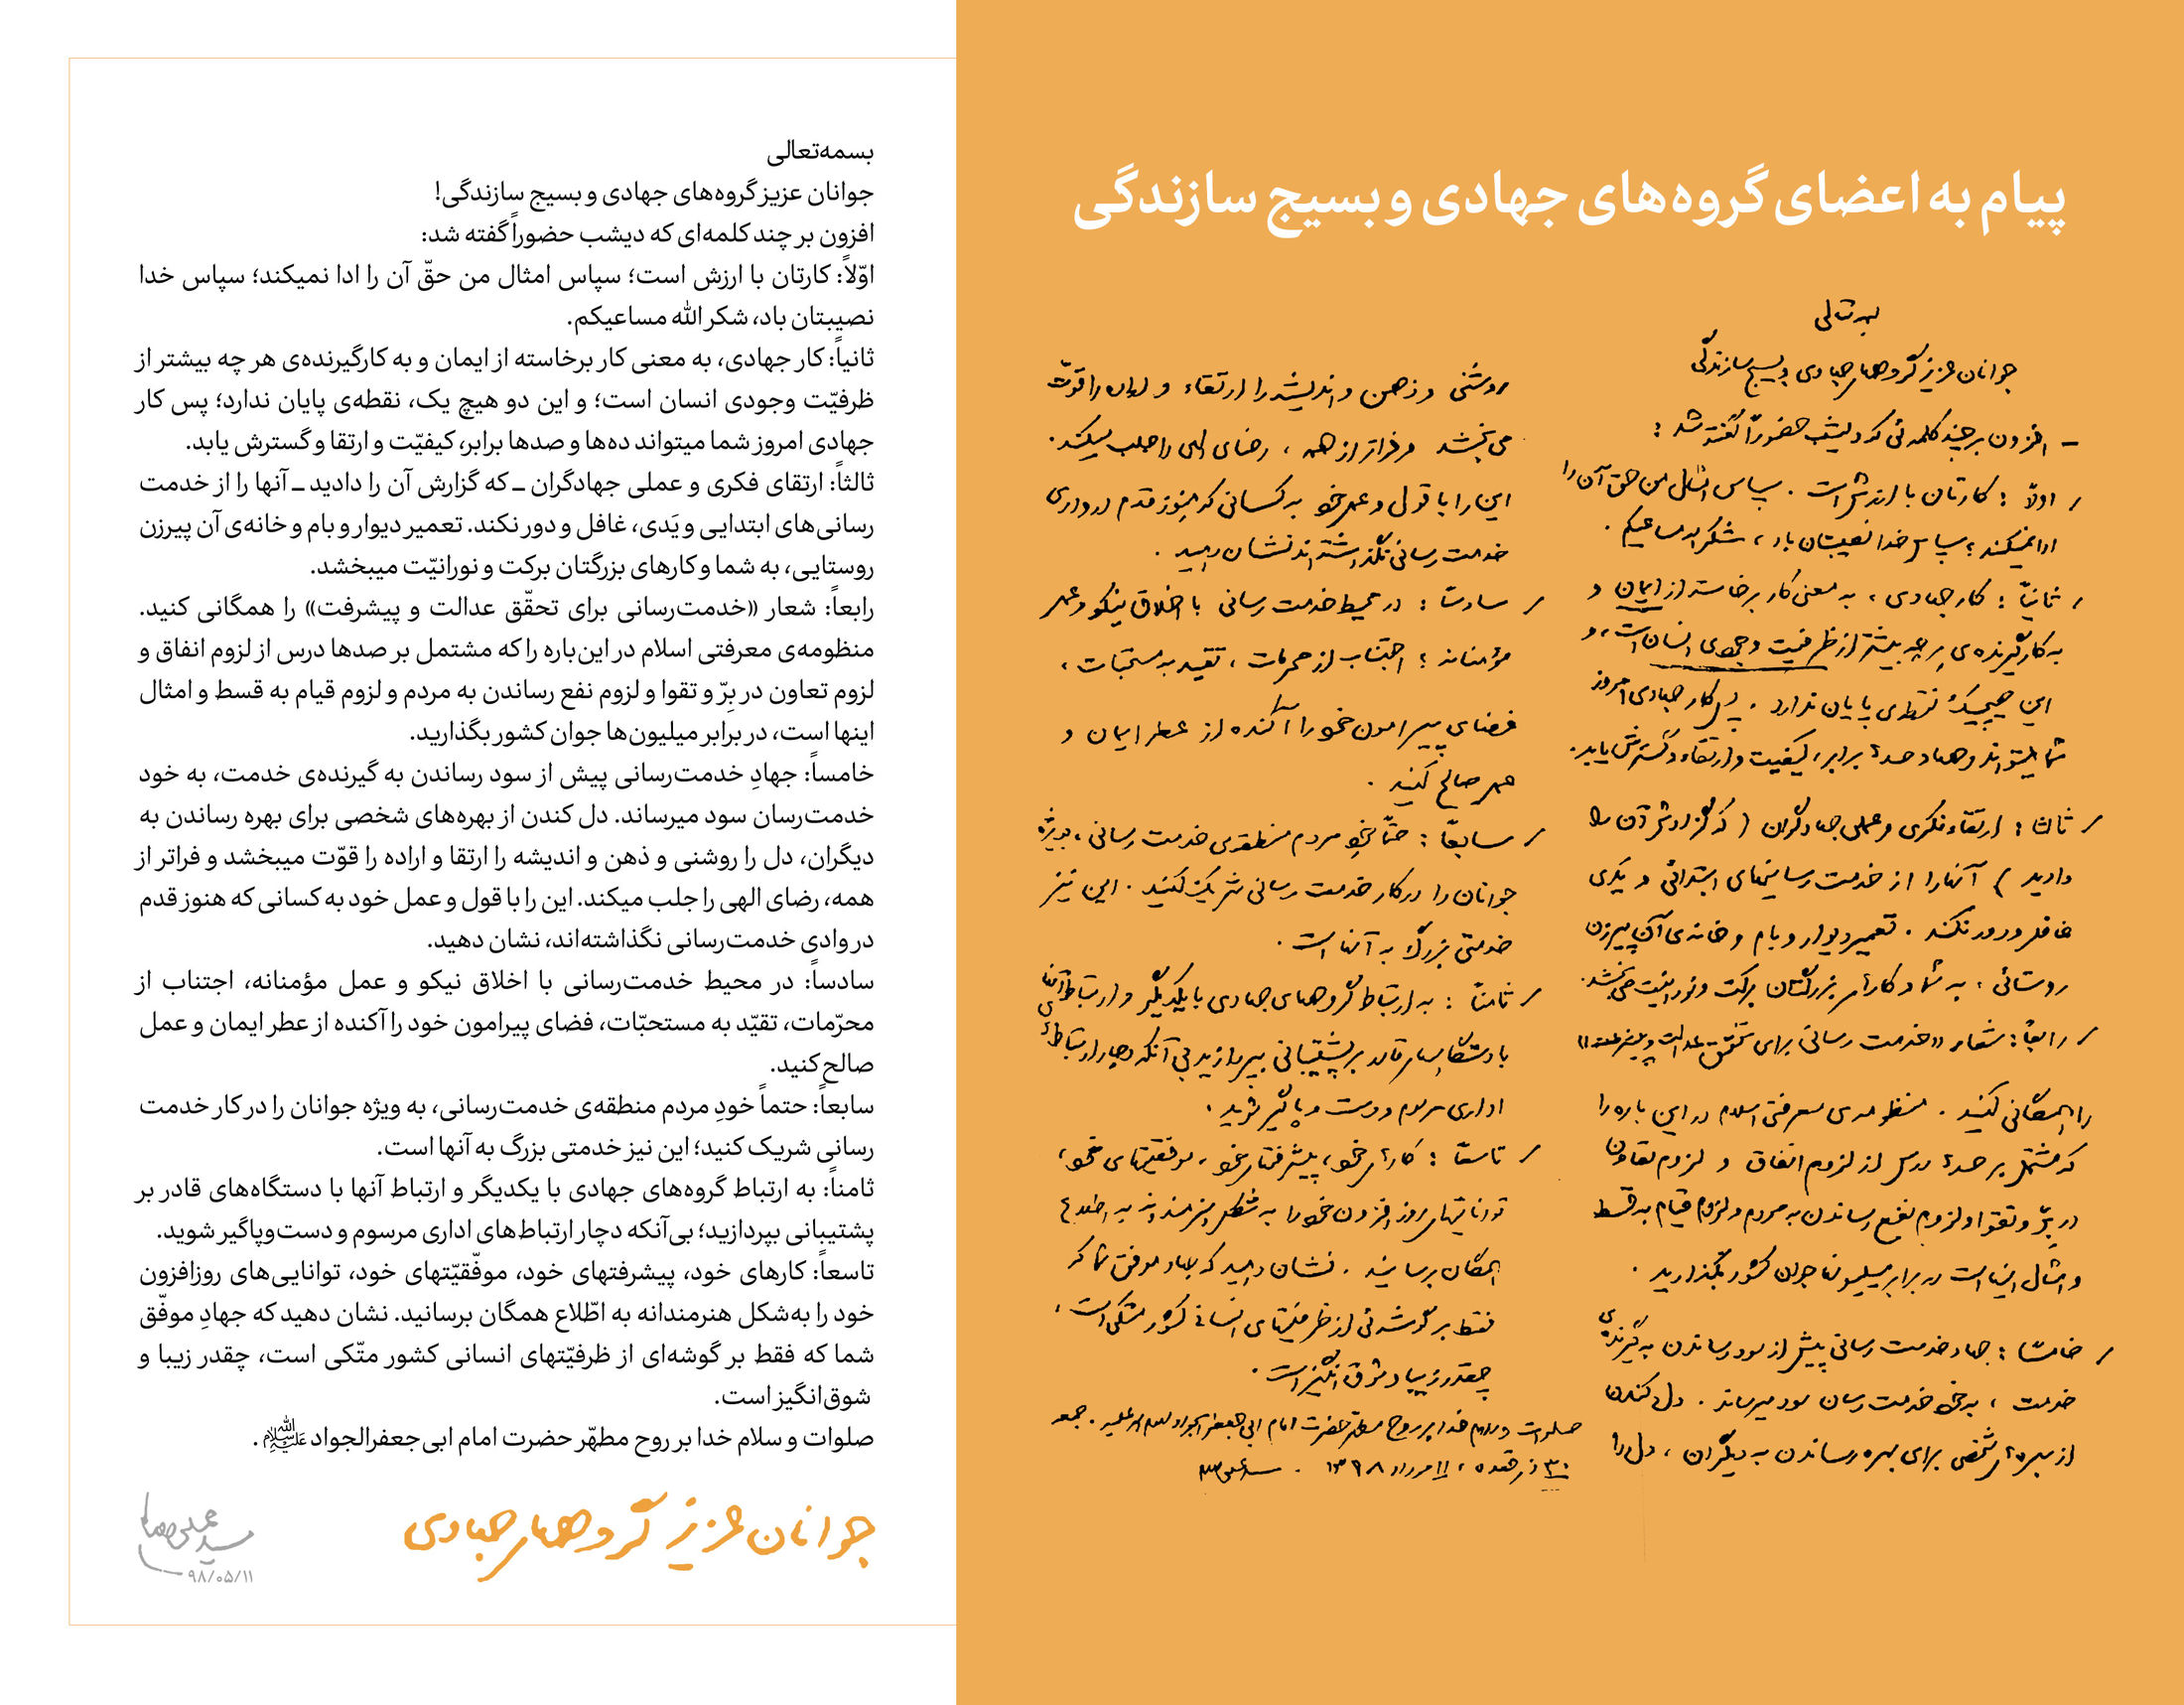 پیام به اعضای گروه‌های جهادی و بسیج سازندگی
بسمه‌تعالی
جوانان عزیز گروههای جهادی و بسیج سازندگی
- افزون بر چند کلمه‌ئی که دیشب حضوراً گفته شد :
/ اولاً : کارتان با ارزش است . سپاس امثال من حق آن را
ادا نمیکند ؛ سپاس خدا نصیبتان باد ، شکر الله مساعیکم .
/ ثانیاً : کار جهادی ، به معنی کار برخاسته از ایمان و
به کارگیرنده‌ی هر چه بیشتر از ظرفیت وجودی انسان است ، و
این هیچیک نقطه‌ی پایان ندارد . پس کار جهادی امروز
شما میتواند دهها و صدها برابر ، کیفیت و ارتقاء و گسترش یابد .
/ ثالثاً : ارتقاء فکری و عملی جهادگران ( که گزارش آن را
دادید ) آنها را از خدمت رسانیهای ابتدائی و یَدی
غافل و دور نکند . تعمیر دیوار و بام و خانه‌ی آن پیرزن
روستائی ، به شما و کارهای بزرگتان برکت و نورانیت می‌بخشد .
/ رابعاً : شعار «خدمت رسانی برای تحقق عدالت و پیشرفت»
را همگانی کنید . منظومه‌ی معرفتی اسلام در این باره را
که مشتمل بر صدها درس از لزوم انفاق و لزوم تعاون
در بِرّ و تقوا و لزوم نفع رساندن به مردم و لزوم قیام به قسط
و امثال اینها است در برابر میلیونها جوان کشور بگذارید .
/ خامساً : جهاد خدمت رسانی پیش از سود رساندن به گیرنده‌ی
خدمت ، به خود خدمت رسان سود میرساند . دل کندن
از بهره‌های شخصی برای بهره رساندن به دیگران ، دل را
روشنی و ذهن و اندیشه را ارتقاء و اراده را قوّت
می‌بخشد و فراتر از همه ، رضای الهی را جلب میکند .
این را با قول و عمل خود به کسانی که هنوز قدم در وادی
خدمت رسانی نگذاشته‌اند نشان دهید .
/ سادساً : در محیط خدمت رسانی با اخلاق نیکو و عمل
مؤمنانه ؛ اجتناب از محرمات ، تقید به مستحبّات ،
فضای پیرامون خود را آکنده از عطر ایمان و
عمل صالح کنید .
/ سابعاً : حتماً خودِ مردم منطقه‌ی خدمت رسانی ، بویژه
جوانان را در کار خدمت رسانی شریک کنید . این نیز
خدمتی بزرگ به آنها است .
/ ثامناً : به ارتباط گروههای جهادی با یکدیگر و ارتباط آنها
با دستگاههای قادر بر پشتیبانی بپردازید بی آنکه دچار ارتباطهای
اداری مرسوم و دست و پاگیر شوید .
/ تاسعاً : کارهای خود ، پیشرفتهای خود ، موفقیتهای خود ،
توانائیهای روزافزون خود را به شکل هنرمندانه به اطلاع
همگان برسانید . نشان دهید که جهاد موفق شما که
فقط بر گوشه‌ئی از ظرفیتهای انسانی کشور متکی است ،
چقدر زیبا و شوق انگیز است .
صلوات و سلام خدا بر روح مطهر حضرت امام ابی جعفر الجواد سلام الله علیه . جمعه
۳۰ ذیقعده ، ۱۱ مرداد ۱۳۹۸ .
بسمه‌تعالی
جوانان عزیز گروه‌های جهادی و بسیج سازندگی!
افزون بر چند کلمه‌ای که دیشب حضوراً گفته شد:
اوّلاً: کارتان با ارزش است؛ سپاس امثال من حقّ آن را ادا نمیکند؛ سپاس خدا
نصیبتان باد، شکر الله مساعیکم.
ثانیاً: کار جهادی، به معنی کار برخاسته از ایمان و به کارگیرنده‌ی هر چه بیشتر از
ظرفیّت وجودی انسان است؛ و این دو هیچ یک، نقطه‌ی پایان ندارد؛ پس کار
جهادی امروز شما میتواند ده‌ها و صدها برابر، کیفیّت و ارتقا و گسترش یابد.
ثالثاً: ارتقای فکری و عملی جهادگران ــ که گزارش آن را دادید ــ آنها را از خدمت
رسانی‌های ابتدایی و یَدی، غافل و دور نکند. تعمیر دیوار و بام و خانه‌ی آن پیرزن
روستایی، به شما و کارهای بزرگتان برکت و نورانیّت میبخشد.
رابعاً: شعار «خدمت‌رسانی برای تحقّق عدالت و پیشرفت» را همگانی کنید.
منظومه‌ی معرفتی اسلام در این‌باره را که مشتمل بر صدها درس از لزوم انفاق و
لزوم تعاون در بِرّ و تقوا و لزوم نفع رساندن به مردم و لزوم قیام به قسط و امثال
اینها است، در برابر میلیون‌ها جوان کشور بگذارید.
خامساً: جهادِ خدمت‌رسانی پیش از سود رساندن به گیرنده‌ی خدمت، به خود
خدمت‌رسان سود میرساند. دل کندن از بهره‌های شخصی برای بهره رساندن به
دیگران، دل را روشنی و ذهن و اندیشه را ارتقا و اراده را قوّت میبخشد و فراتر از
همه، رضای الهی را جلب میکند. این را با قول و عمل خود به کسانی که هنوز قدم
در وادی خدمت‌رسانی نگذاشته‌اند، نشان دهید.
سادساً: در محیط خدمت‌رسانی با اخلاق نیکو و عمل مؤمنانه، اجتناب از
محرّمات، تقیّد به مستحبّات، فضای پیرامون خود را آکنده از عطر ایمان و عمل
صالح کنید.
سابعاً: حتماً خودِ مردم منطقه‌ی خدمت‌رسانی، به ویژه جوانان را در کار خدمت
رسانی شریک کنید؛ این نیز خدمتی بزرگ به آنها است.
ثامناً: به ارتباط گروه‌های جهادی با یکدیگر و ارتباط آنها با دستگاه‌های قادر بر
پشتیبانی بپردازید؛ بی‌آنکه دچار ارتباط‌های اداری مرسوم و دست‌وپاگیر شوید.
تاسعاً: کارهای خود، پیشرفتهای خود، موفّقیّتهای خود، توانایی‌های روزافزون
خود را به‌شکل هنرمندانه به اطّلاع همگان برسانید. نشان دهید که جهادِ موفّق
شما که فقط بر گوشه‌ای از ظرفیّتهای انسانی کشور متّکی است، چقدر زیبا و
شوق‌انگیز است.
صلوات و سلام خدا بر روح مطهّر حضرت امام ابی‌جعفرالجواد علیه‌السلام.
جوانان عزیز گروههای جهادی
۹۸/۰۵/۱۱